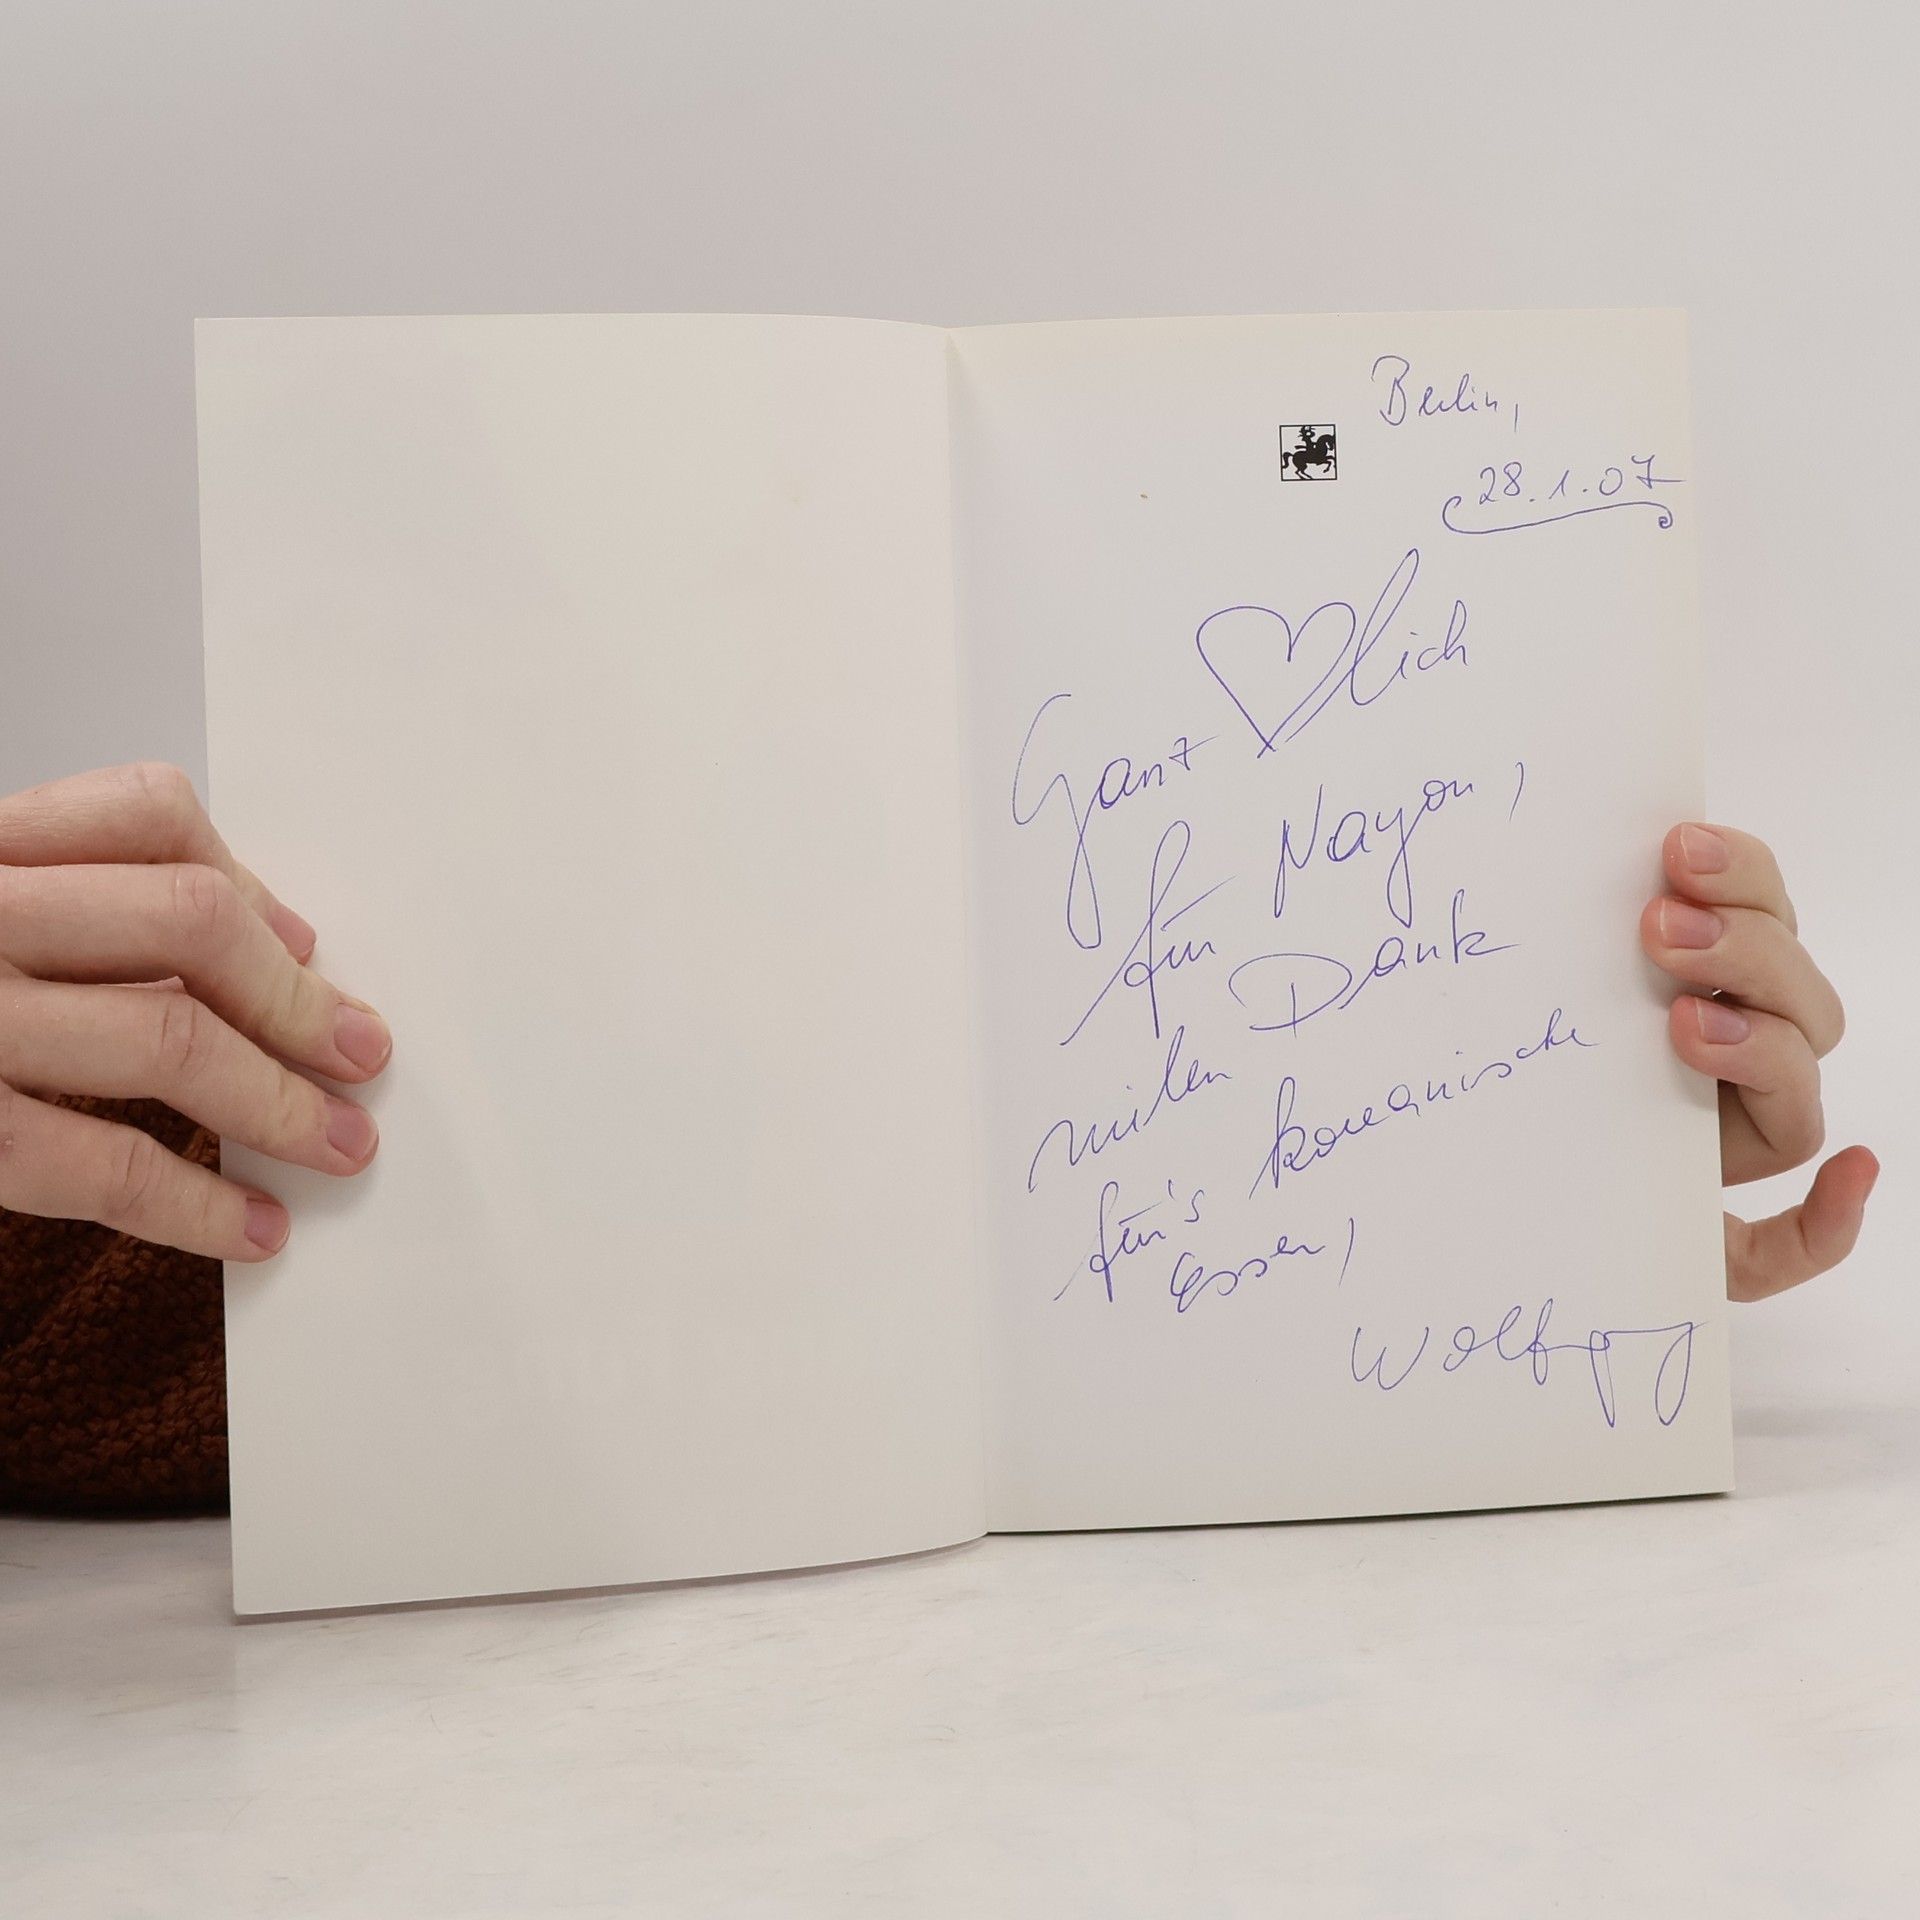 Berlin,
28.1.07
Ganz ♡lich
für Nayon,
vielen Dank
für's koreanische
Essen,
Wolfgang